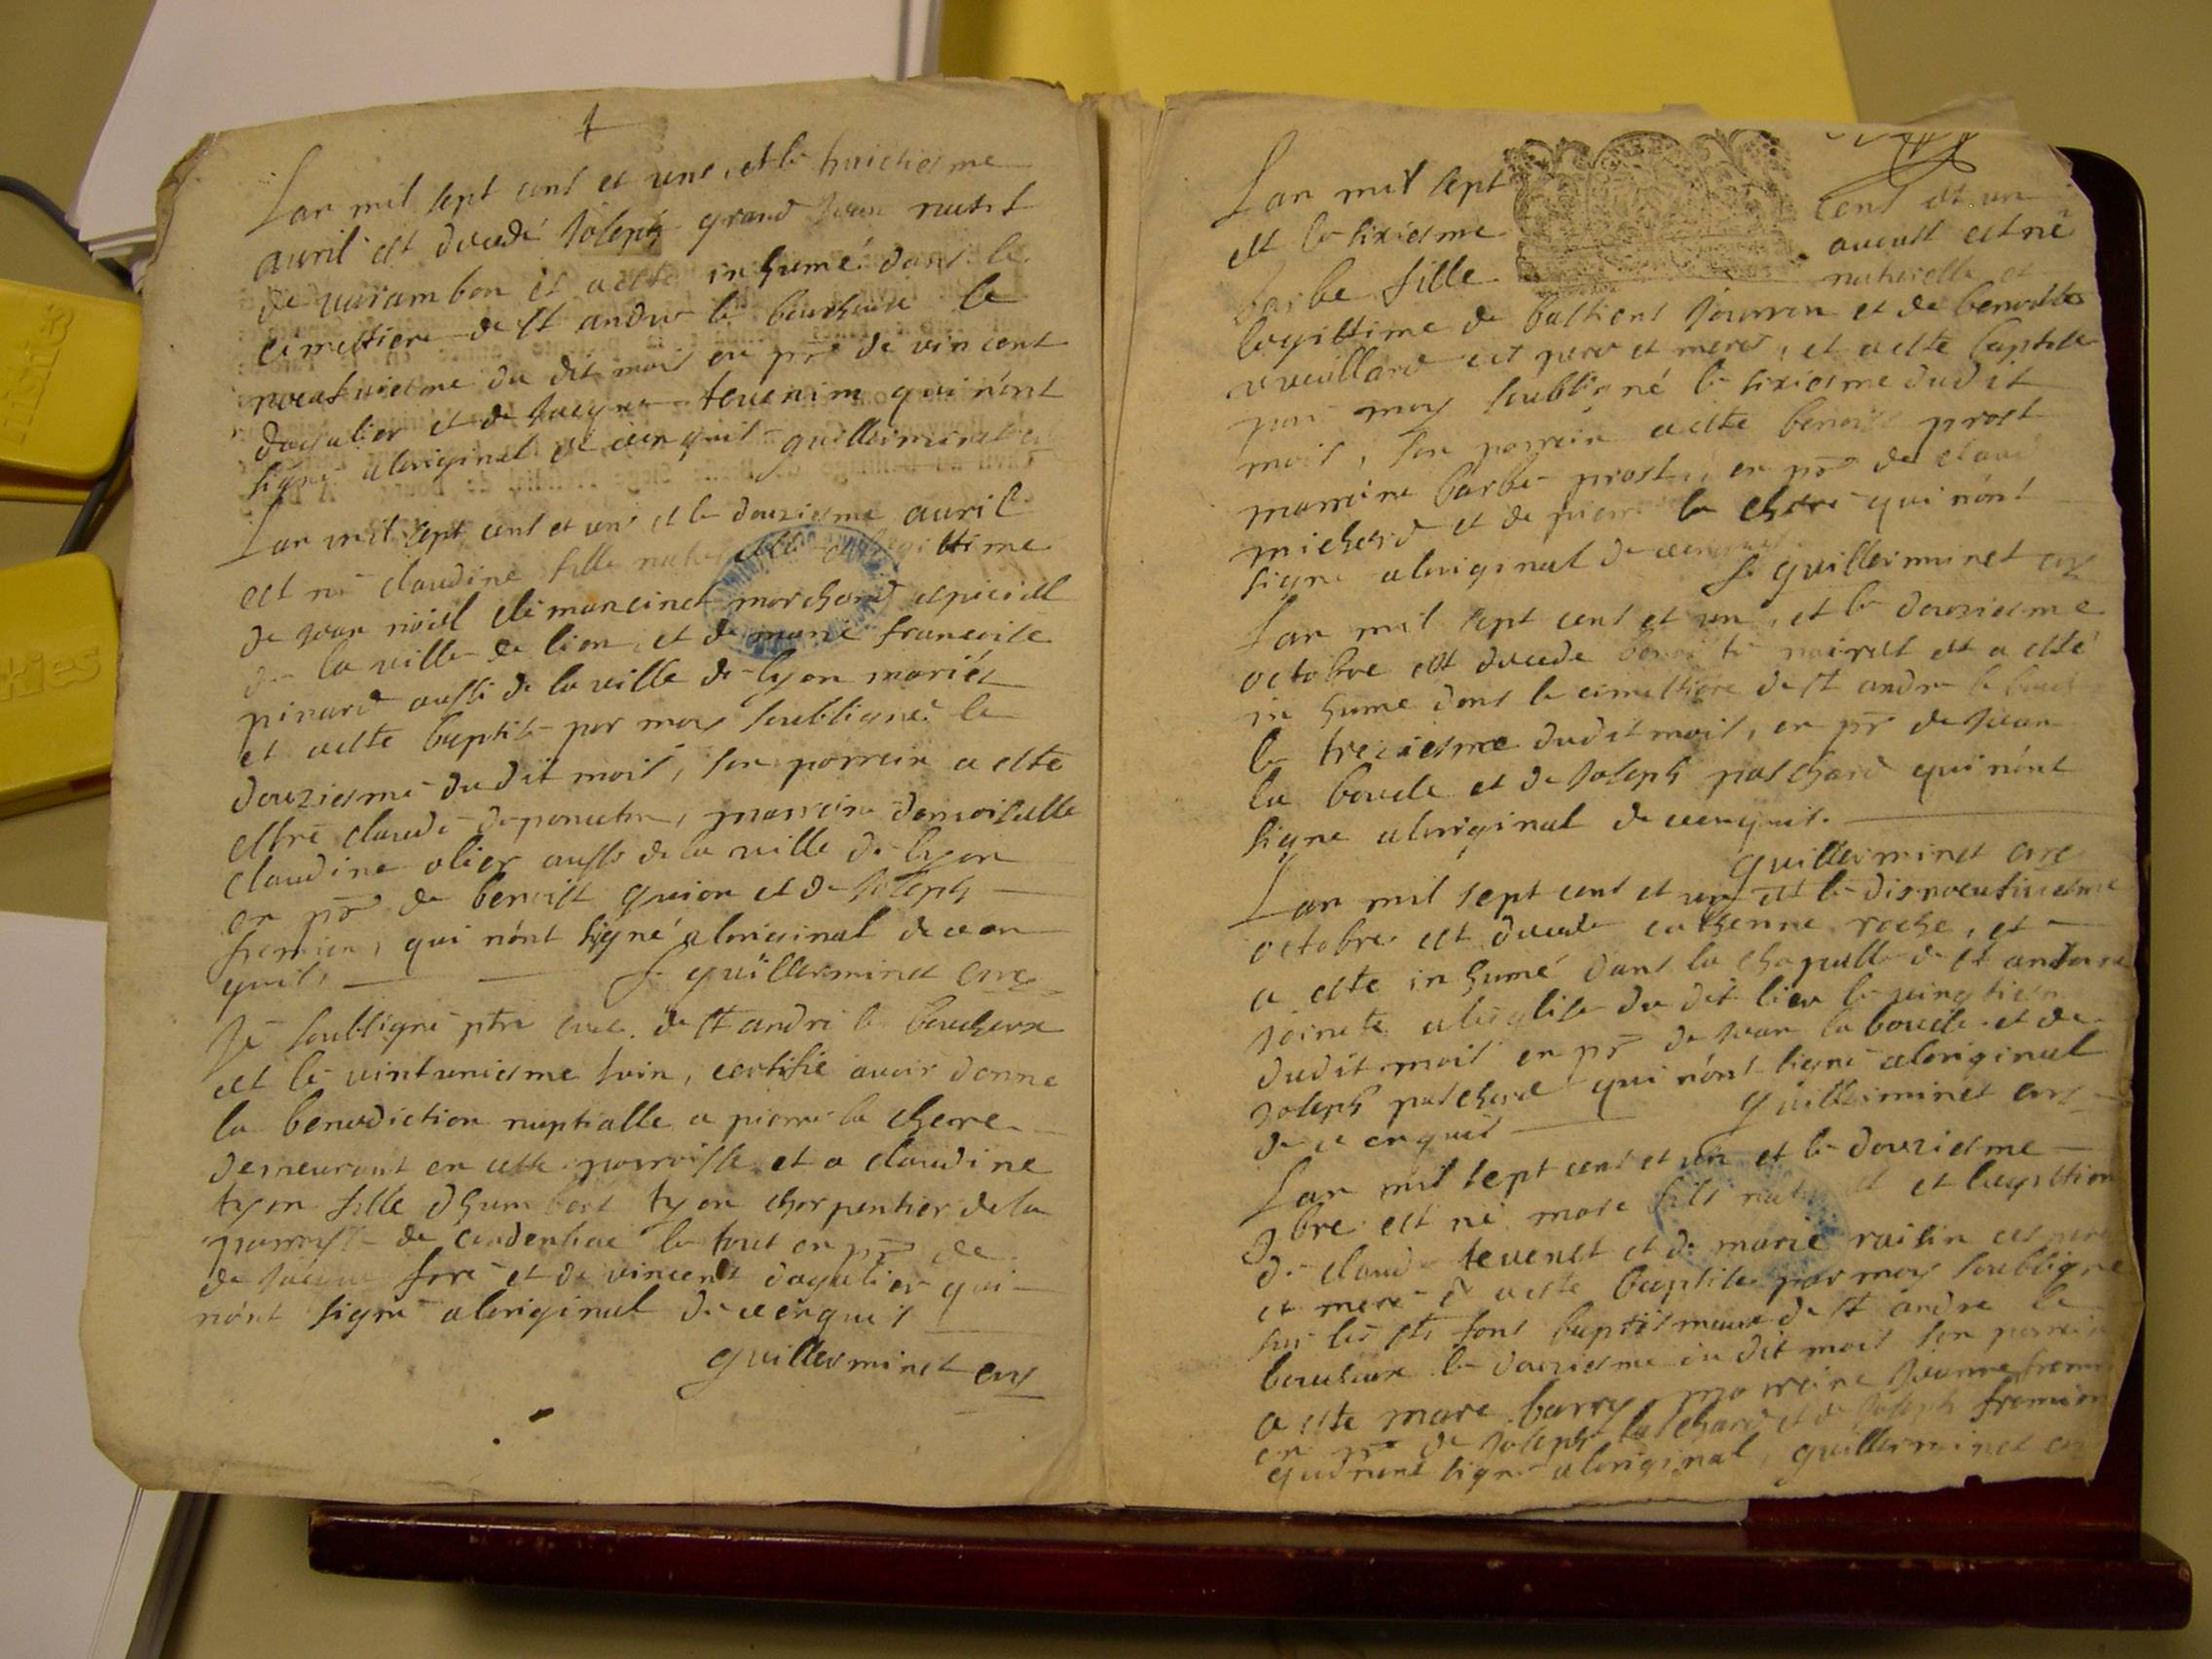 Lan mil sept cens et uns, et le huictiesme
auril est decedé Joseph grand Jean natif
de varambon et a esté inhumé dans le
cimettiere de st andre le bouchoux le
neufuiesme du dit mois en pr̄ de vincent
dagalier et de Jacques tevenin qui nónt
signé aloriginal de ce enquis guilleminet
Lan mil sept cens et uns et le douziesme auril
est né claudine fille naturelle et legittime
de Jean nöiel de marcinet marchand espiciell
de la ville de lion, et de marie francoise
pinard aussi de la ville de lyon mariés
et aesté baptisé par moy soubsigné le
douziesme du dit mois, son parrein a esté
claude marreine damoiselle
claudine olier aussi de la ville de lyon
en pr̄ de benoist guion et de Joseph
fremion, qui nónt signé aloriginal de ce en
quis guillerminet cure
Je soubsigné ptre curé de st andré le bouchoux
et le vintuniesme Juin, certifie avoir donne
la benediction nuptialle a pierre la cherre
demeurant en cette parroisse et a claudine
tyon fille dhumbert tyon charpentier de la
parroisse de le tout en pr̄ de
de Jacque foré et de vincent dagalier qui
nónt signé aloriginal de ce enquis
guillerminet cure
Lan mil sept cens et un
et le sixiesme auoust est né
barbe fille naturelle et
legittime de bastient Jouvron et de benoitte
vveillard ces pere et mere, et aesté baptisée
par moy soubsigné le sixiesme dudit
mois, son parrein aesté benoist prost
marreine barbe prost, en pr̄ de claude
michard et de pierre la cherre qui nónt
signé aloriginal de ce enquis
guillerminet cure
Lan mil sept cens et un, et le douziesme
octobre est decede noirest et a esté
inhume dans le cimettiere de st andre le
le treziesme dudit mois, en pr̄ de Jean
la boucle et de Joseph paschard qui nónt
signe aloriginal de ce enquis.
guillerminet cure
Lan mil sept cens et un et le disneufuiesme
octobre est decede cathenne roche, et
a esté inhumé dans la chapelle de st antoine
Joincte aleglise du dit lieu le vingtiesme
dudit mois en pr̄ de Jean la boucle et de
Joseph paschard qui nónt signé aloriginal
de ce enquis guillerminet cure
Lan mil sept cens et ún et le douziesme
9bre est né marc fils naturel et legittime
de claude tevenet et de marie raisin ces pere
et mere & aesté baptisé par moy soubsigne
sur les sts fons baptismaux de st andre le
bouchoux le douziesme du dit mois son parrein
a esté marc barry, marreine Jeanne
en pr̄ de Joseph paschard et de Joseph fremion
qui nónt signé aloriginal, guillerminet cure